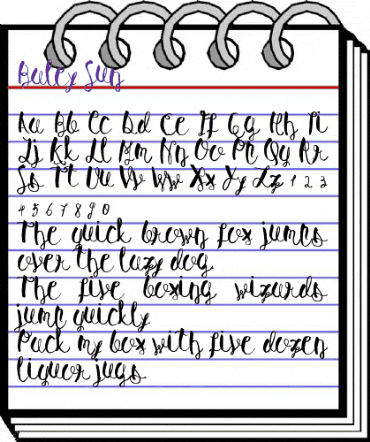 Bully Sun
Aa Bb Cc Dd Ee Ff Gg Hh Ii
Jj Kk Ll Mm Nn Oo Pp Qq Rr
Ss Tt Uu Vv Ww Xx Yy Zz 1 2 3
4 5 6 7 8 9 0
The quick brown fox jumps
over the lazy dog.
The five boxing wizards
jump quickly
Pack my box with five dozen
liquor jugs.